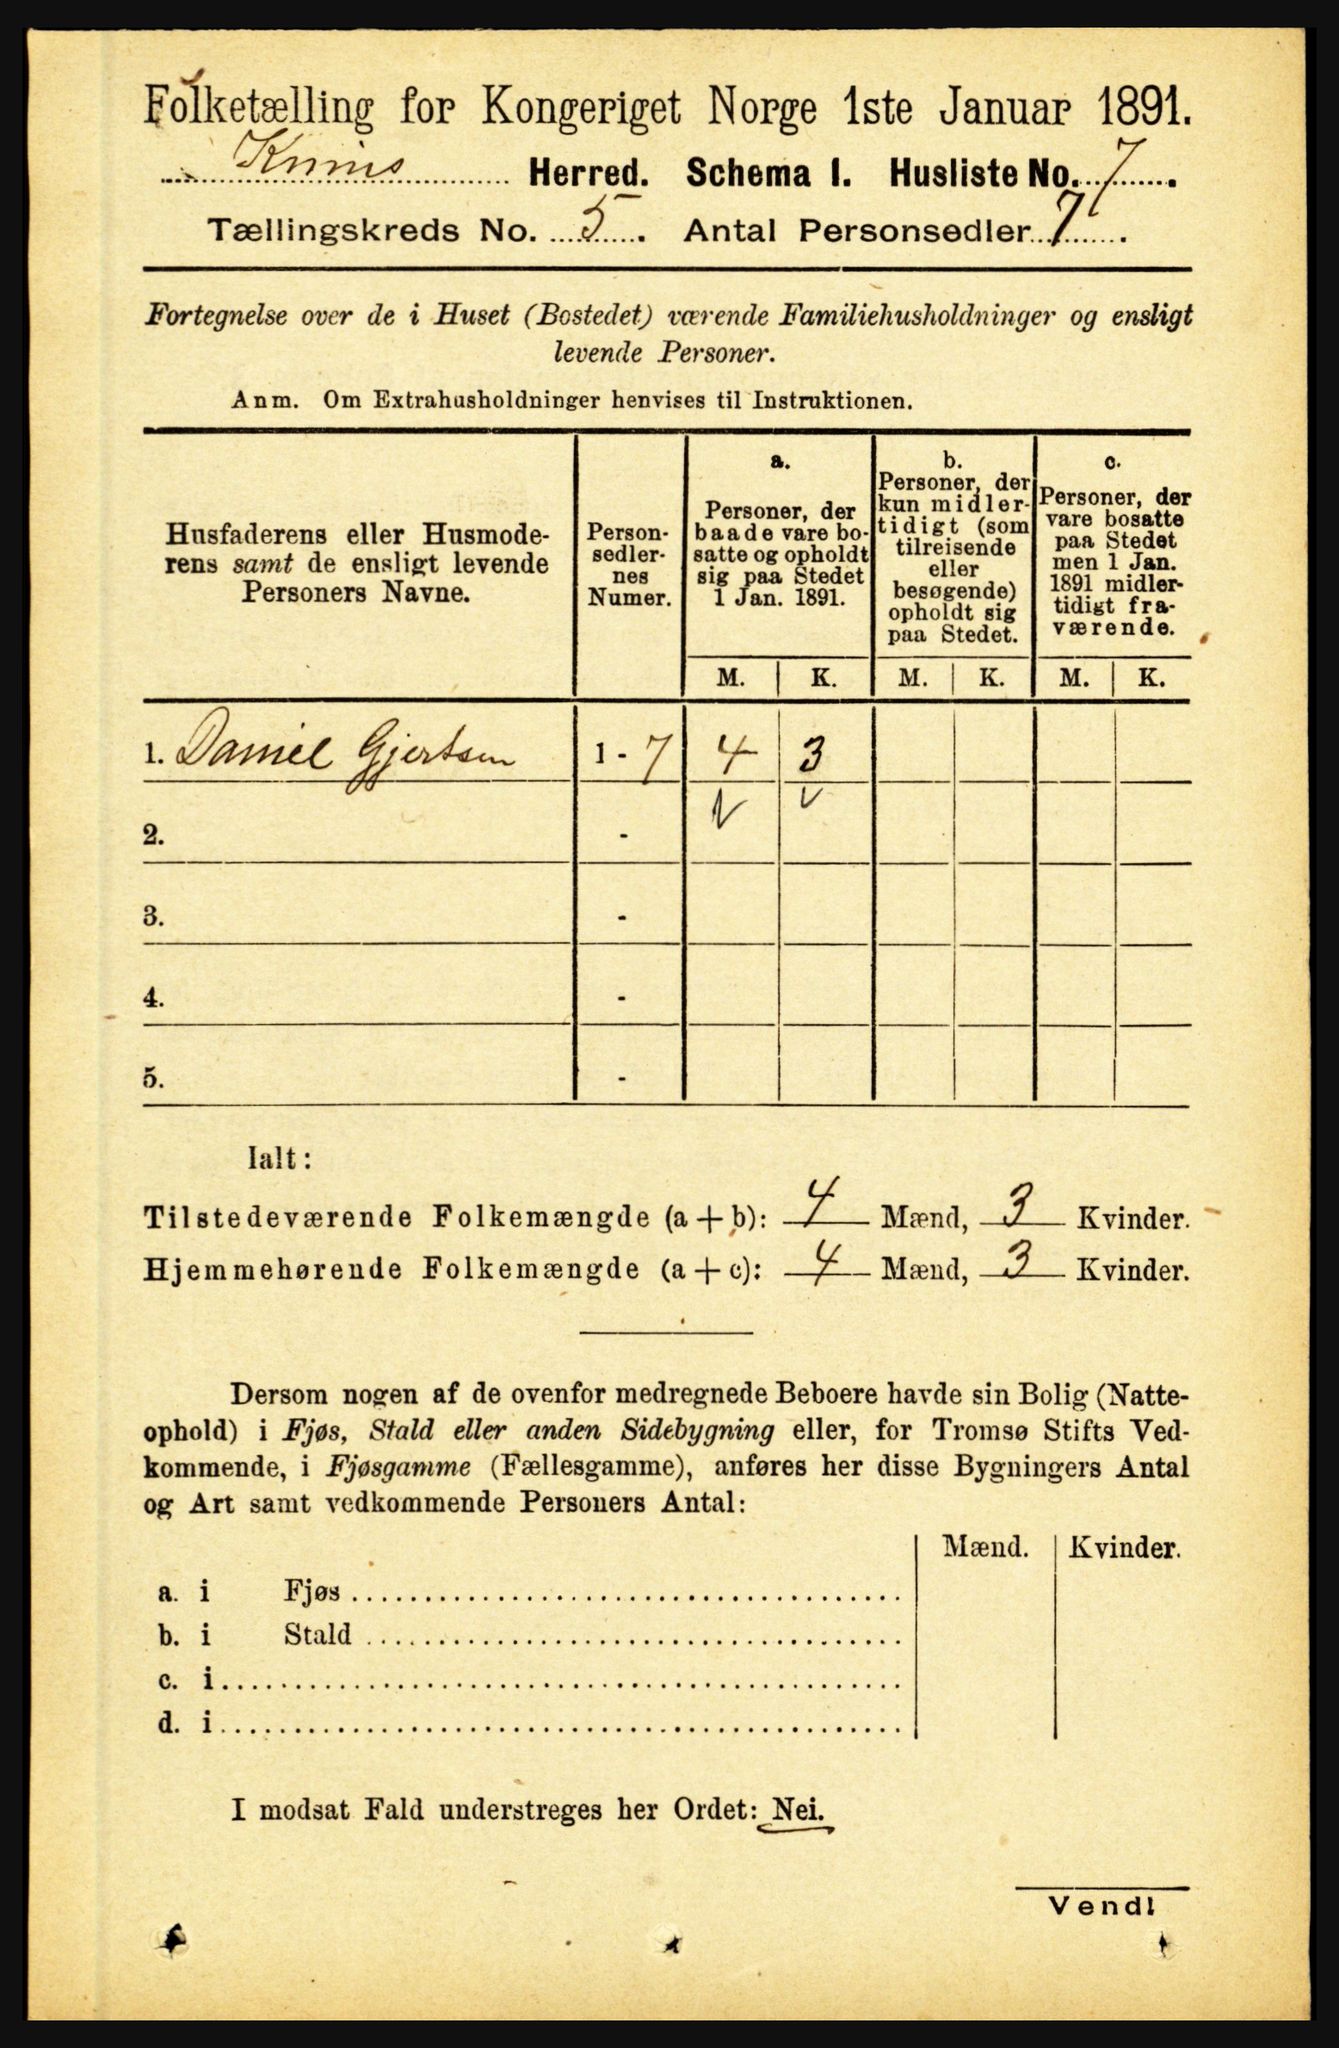 Folketælling for Kongeriget Norge 1ste Januar 1891.
Kinns Herred. Schema I. Husliste No. 7.
Tællingskreds No. 5. Antal Personsedler 7.
Fortegnelse over de i Huset (Bostedet) værende Familiehusholdninger og ensligt
levende Personer.
Anm. Om Extrahusholdninger henvises til Instruktionen.
Husfaderens eller Husmode-
rens samt de ensligt levende
Personers Navne.
Person-
sedler-
nes
Numer.
a.
Personer, der
baade vare bo-
satte og opholdt
sig paa Stedet
1 Jan. 1891.
b.
Personer, der
kun midler-
tidigt (som
tilreisende
eller
besøgende)
opholdt sig
paa Stedet.
c.
Personer, der
vare bosatte
paa Stedet
men 1 Jan.
1891 midler-
tidigt fra-
værende.
M. K. M. K. M. K.
1. Daniel Gjertsen 1 - 7 4 3
2. -
3. -
4. -
5. -
Ialt:
Tilstedeværende Folkemængde (a + b): 4 Mænd, 3 Kvinder.
Hjemmehørende Folkemængde (a + c): 4 Mænd, 3 Kvinder.
Dersom nogen af de ovenfor medregnede Beboere havde sin Bolig (Natte-
ophold) i Fjøs, Stald eller anden Sidebygning eller, for Tromsø Stifts Ved-
kommende, i Fjøsgamme (Fællesgamme), anføres her disse Bygningers Antal
og Art samt vedkommende Personers Antal:
Mænd. Kvinder.
a. i Fjøs
b. i Stald
c. i
d. i
I modsat Fald understreges her Ordet: Nei.
Vend!